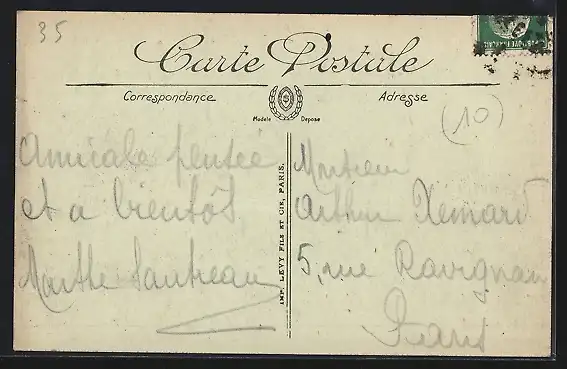 35
Carte Postale
Correspondance
Adresse
Modèle Déposé
(10)
Amicale pensée
et à bientôt
Marthe Sautreau
IMP. LEVY FILS ET CIE, PARIS.
Monsieur
Arthur Xemard
5, rue Ravignan
Paris